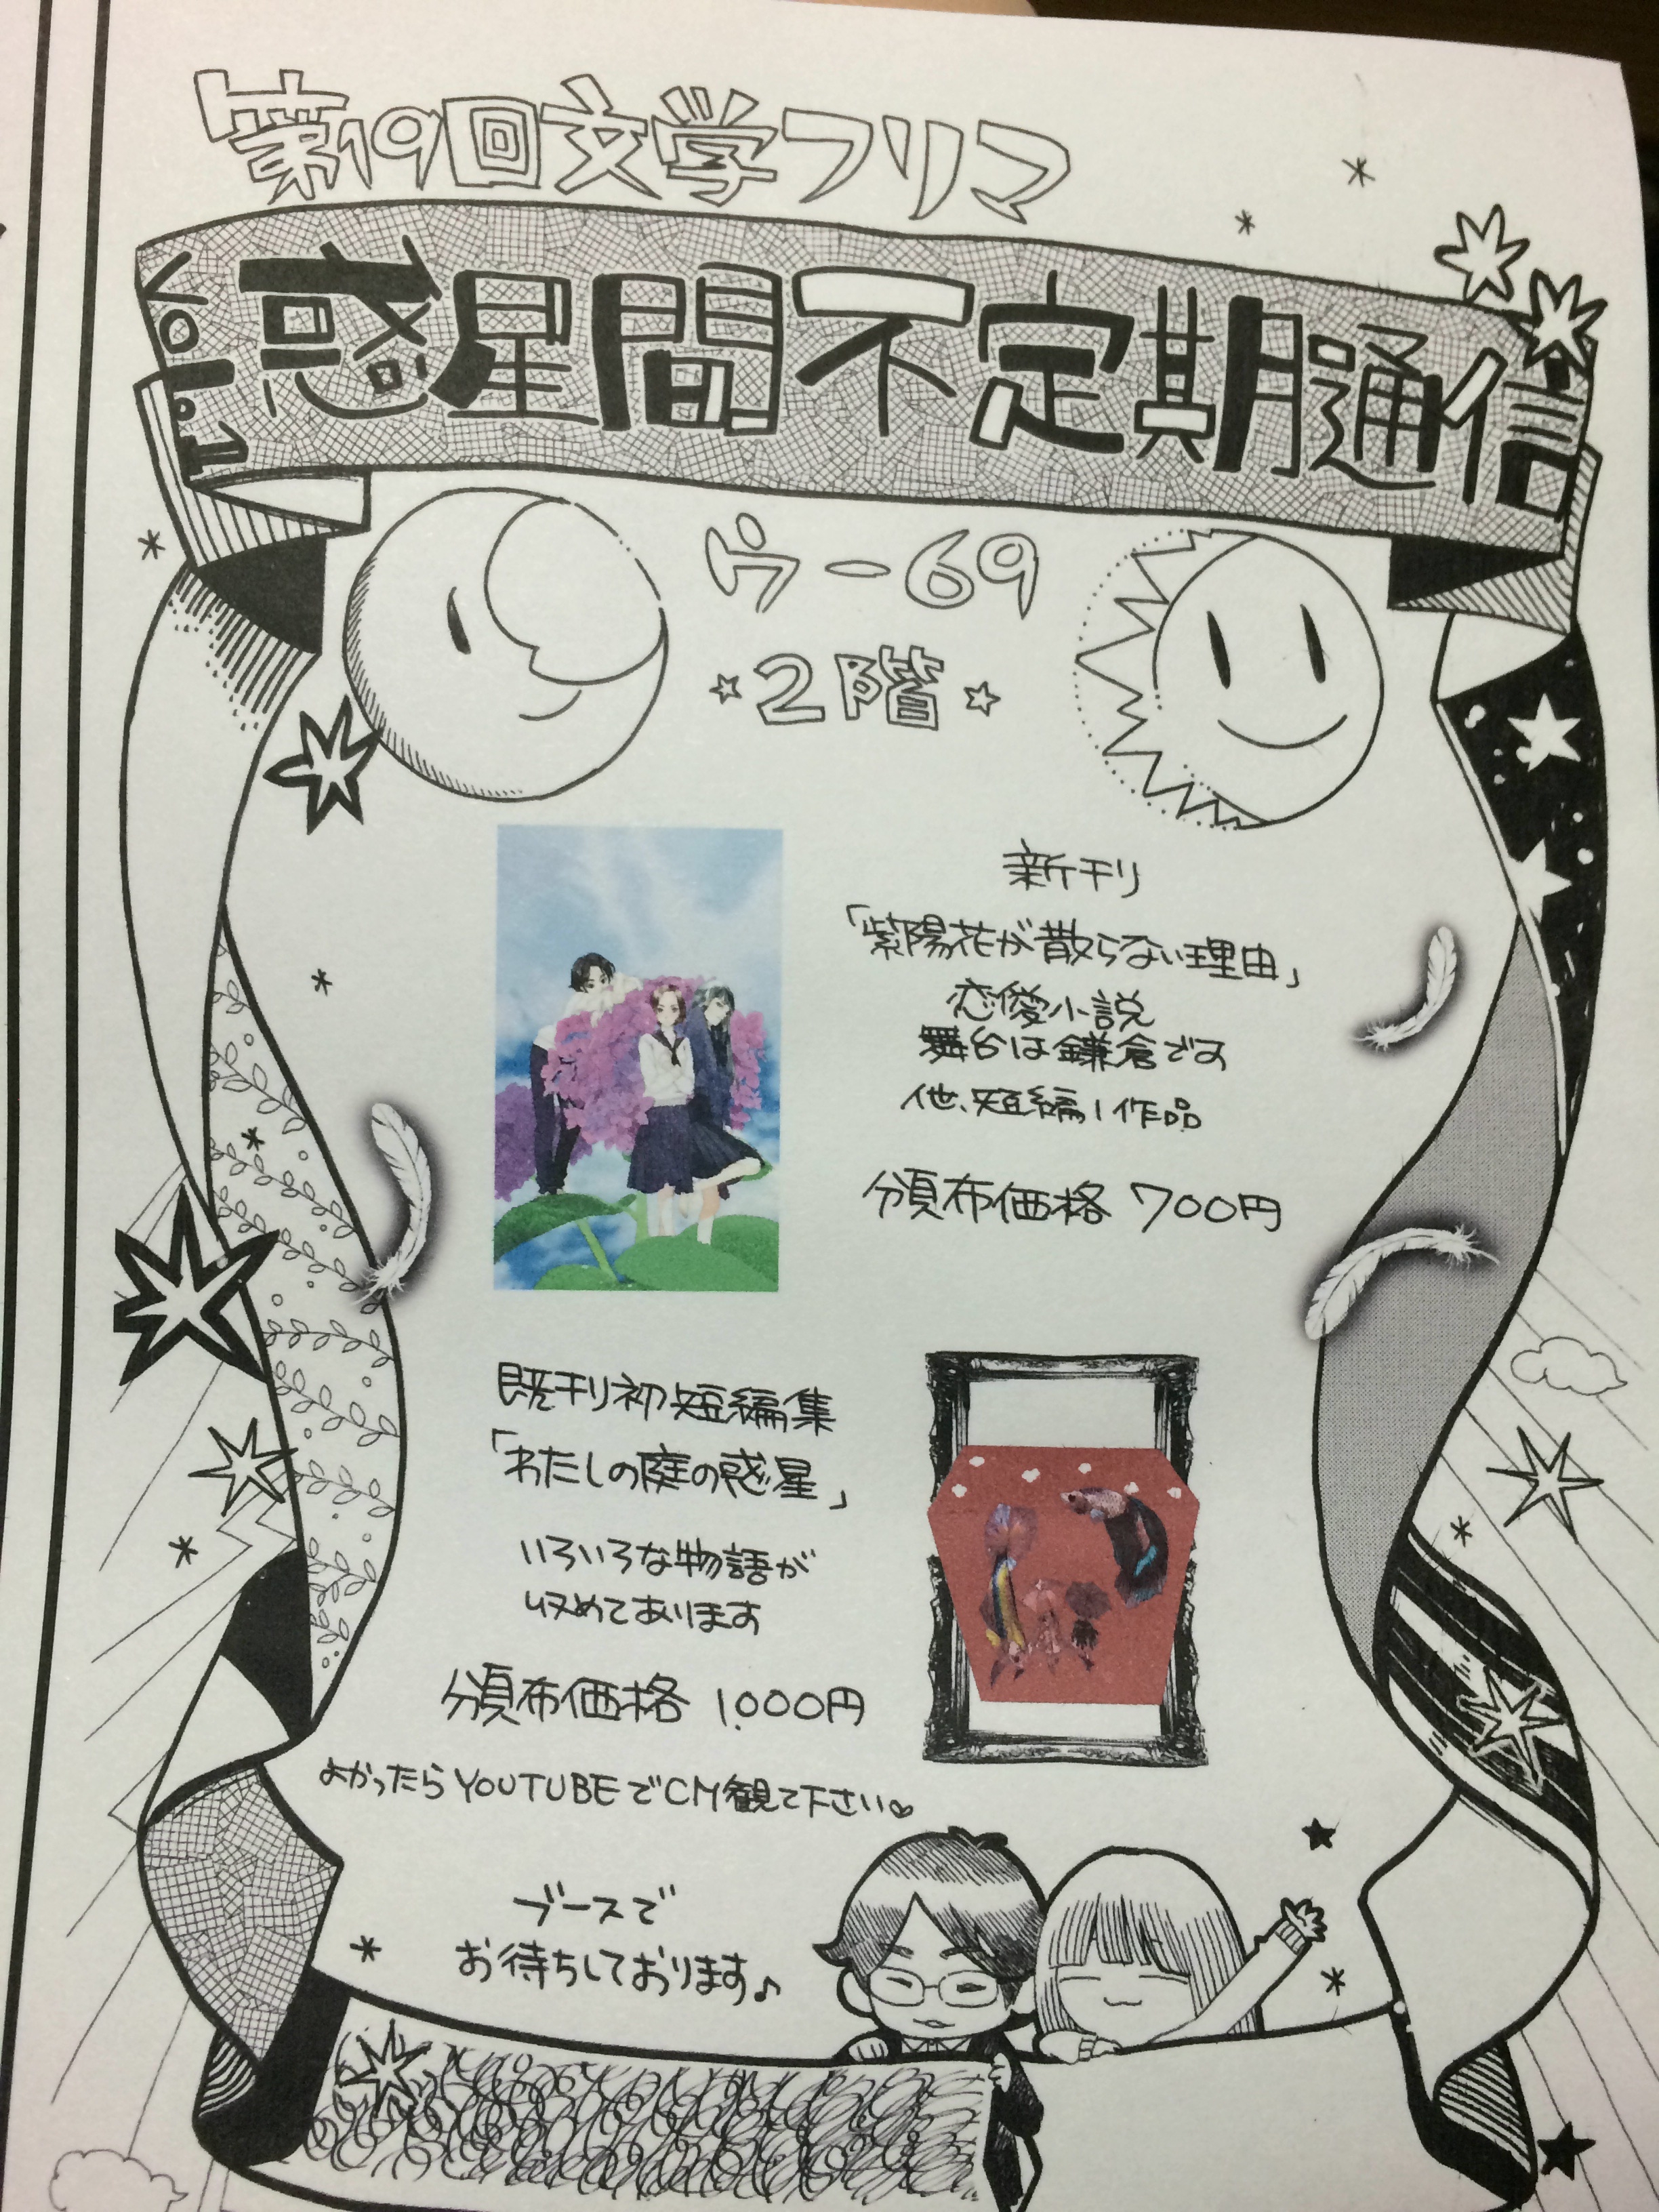 第19回文学フリマ
vol.1
惑星間不定期通信
ウ-69
2階
新刊
「紫陽花が散らない理由」
恋愛小説
舞台は鎌倉です
他、短編1作品
頒布価格 700円
既刊初短編集
「わたしの庭の惑星」
いろいろな物語が
収めてあります
頒布価格 1,000円
よかったらYOUTUBEでCM観て下さい♡
ブースで
お待ちしております♪